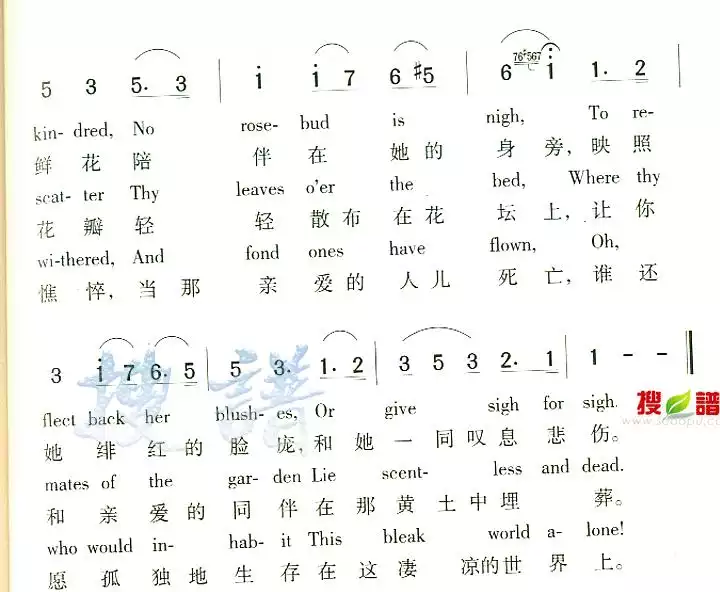 5 3 5. 3 | i i 7 6 #5 | 6 76#567 i 1. 2 |
kin- dred, No rose- bud is nigh, To re-
鲜 花 陪 伴 在 她 的 身 旁, 映 照
scat- ter Thy leaves o'er the bed, Where thy
花 瓣 轻 轻 散 布 在 花 坛 上, 让 你
wi-thered, And fond ones have flown, Oh,
憔 悴, 当 那 亲 爱 的 人 儿 死 亡, 谁 还
3 i 7 6. 5 | 5 3. 1. 2 | 3 5 3 2. 1 | 1 - - ‖
flect back her blush- es, Or give sigh for sigh.
她 绯 红 的 脸 庞, 和 她 一 同 叹 息 悲 伤。
mates of the gar- den Lie scent- less and dead.
和 亲 爱 的 同 伴 在 那 黄 土 中 埋 葬。
who would in- hab- it This bleak world a- lone!
愿 孤 独 地 生 存 在 这 凄 凉 的 世 界 上。
搜 谱
搜 譜
www.sooopu.com